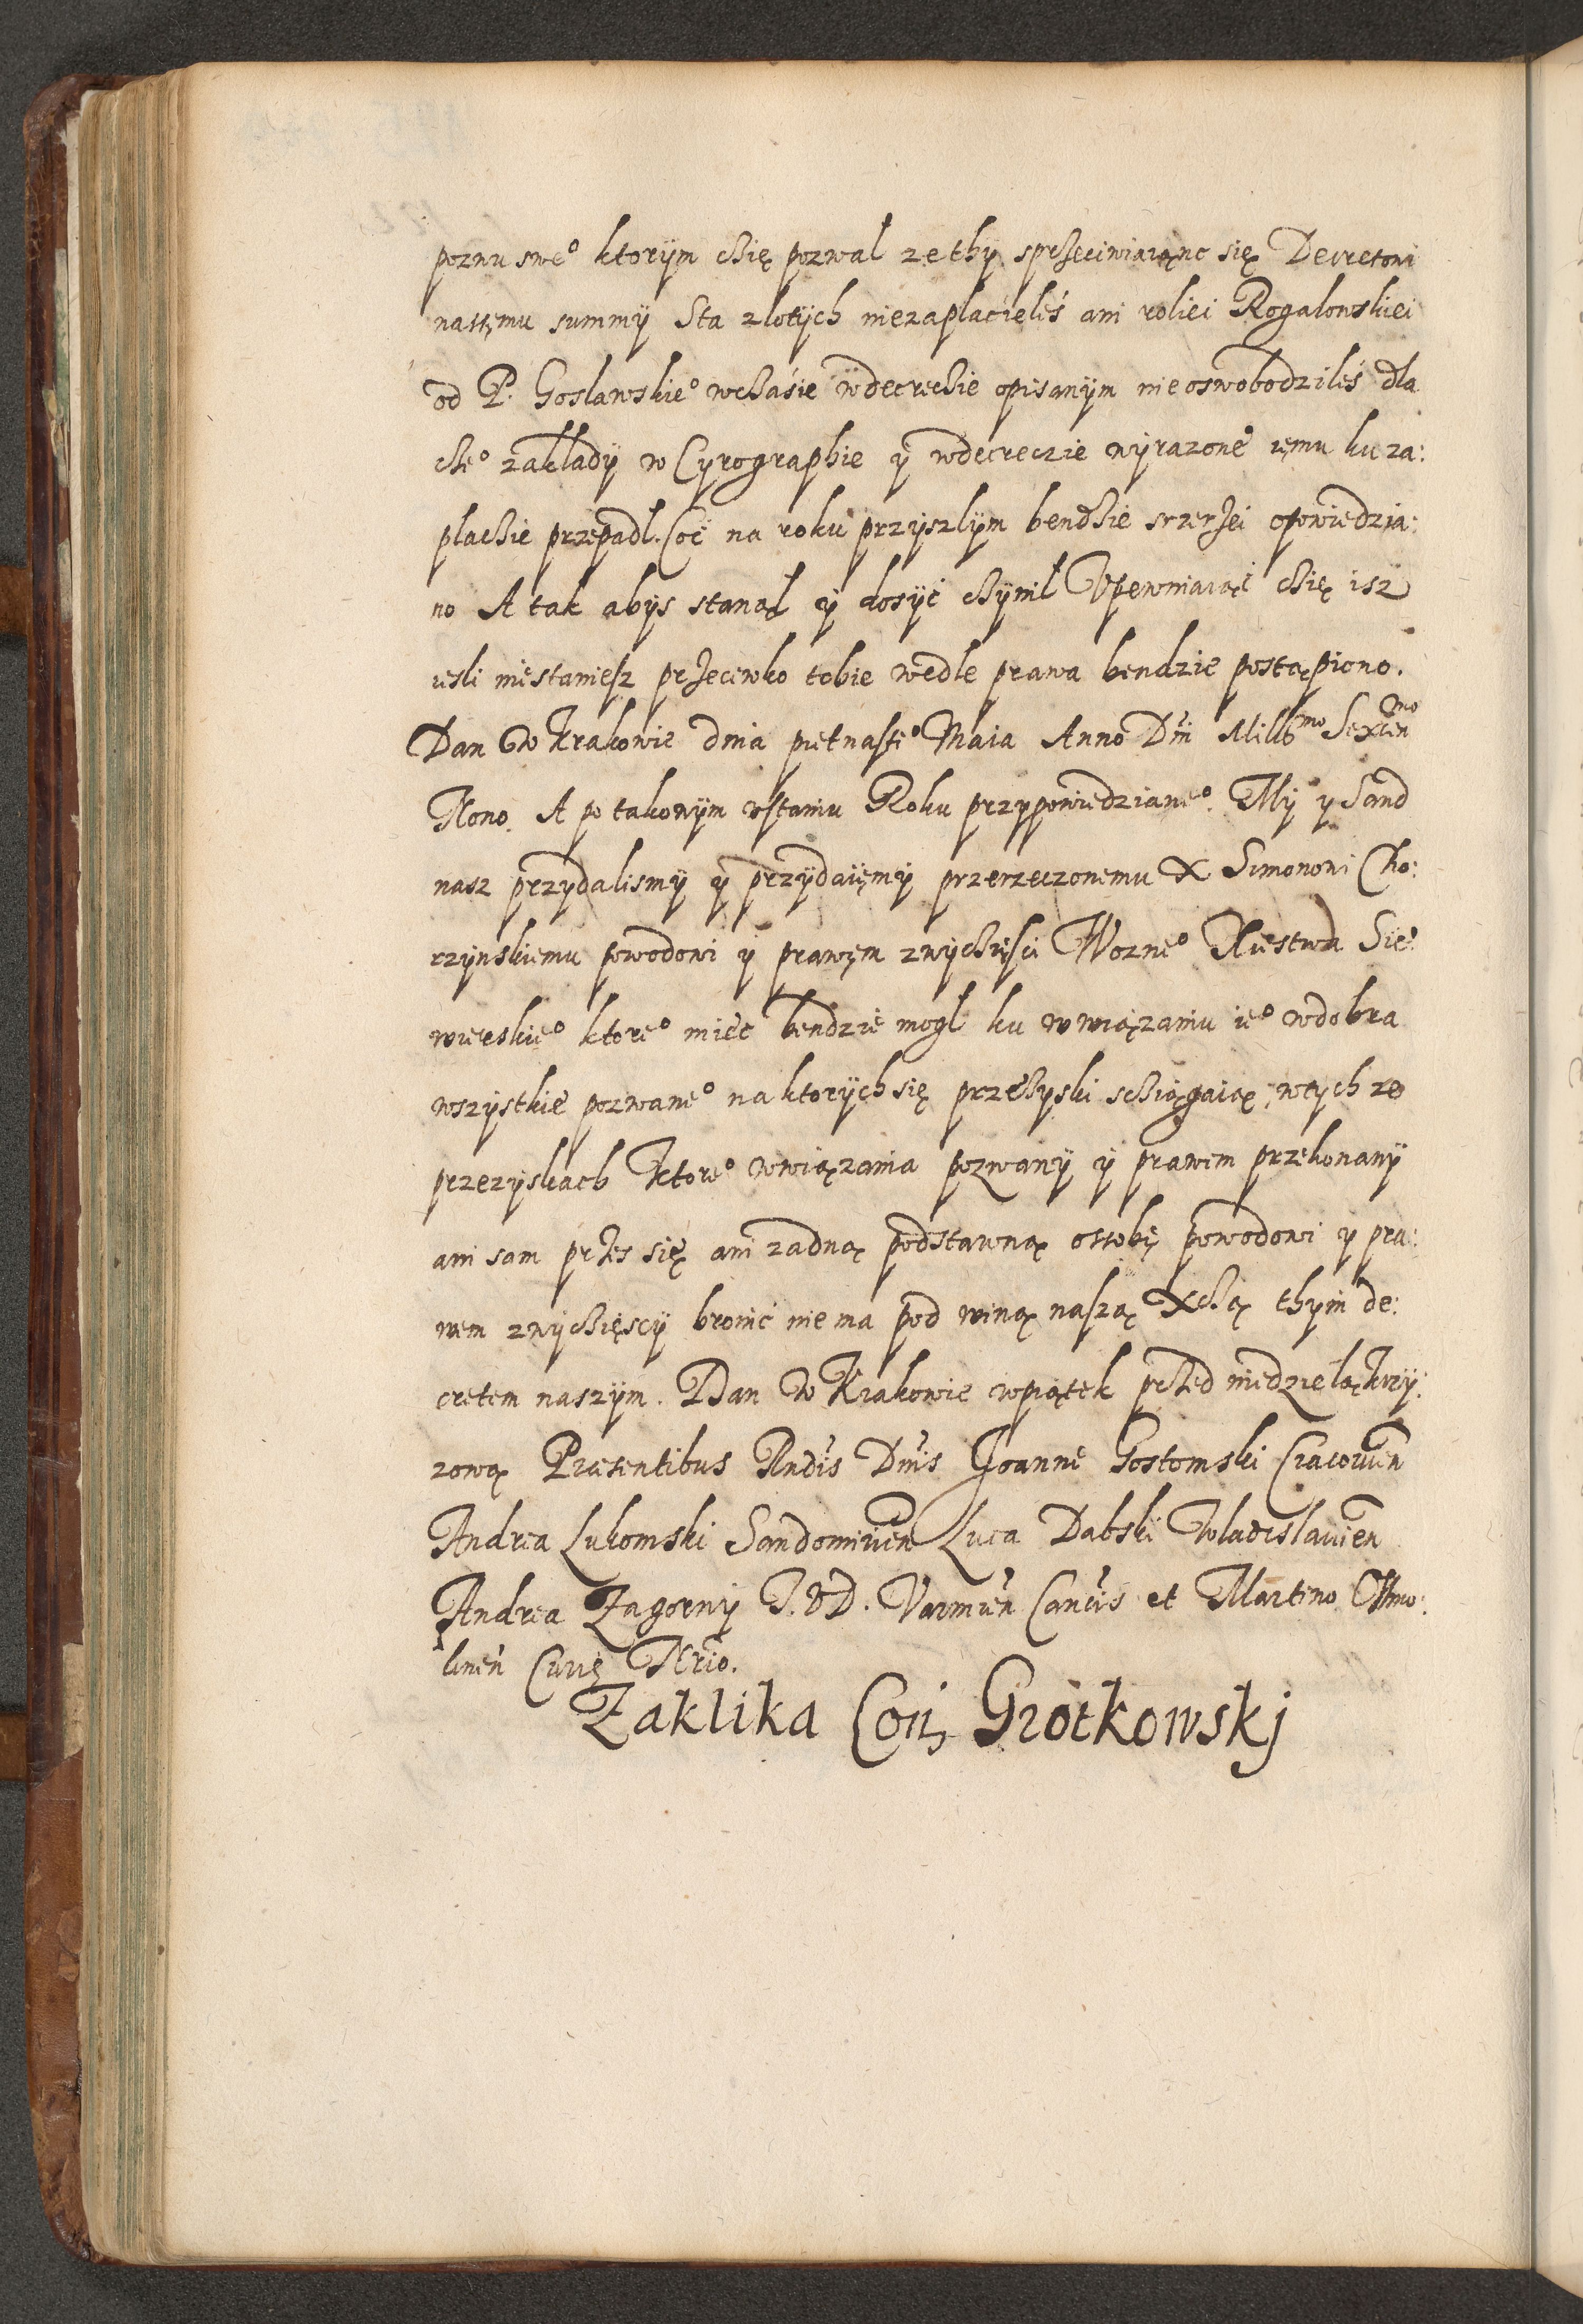 pozwu sweº ktorÿm cżię pozwal ze thÿ sprżeciwiaiąnc się Decretowi
nassęmu summÿ Sta zlotÿch niezaplacieleś ani roliei Rogalowskiei
od P. Goslawskieº wcżasie wdecrecżie opisanÿm nieoswobodzileś dla
cżeº zakladÿ w Cyrographie ÿ wdecreczie wÿrazone iemu ku za:
placżie przepadl. Coć na roku przÿszlÿm bendżie srzerżei opowiedzia:
no A tak abÿs stanąl ÿ dosÿć cżÿnil Vpewniaiąć cżię isz
iesli niestaniesz prżeciwko tobie wedle prawa bendzie postąpiono.
Dan W Krakowie dnia pietnasteº Maia Anno Dni Millmo Sexcenmo
Nono. A po takowÿm wstaniu Roku przypowiedzianeº. Mÿ y Sand
nasz przÿdalismÿ ÿ przÿdaięmÿ przerzeczonemu X Simonowi Cho:
rzÿnskiemu powodowi ÿ prawęm zwÿcżięsci Wozneº Xiestwa Sie:
wierskieº ktoreº mieć bendzie mogl ku wwiązaniu ieº wdobra
wszÿstkie pozwaneº na ktorÿch się przeżyski scżiągaią, wtych ze
przezÿskach Ktoreº wwiązania pozwanÿ ÿ prawem przekonanÿ
ani sam przes się ani zadną podstawną ossobę powodowi ÿ pra:
wem zwÿcżięscÿ bronić nie ma pod winą naszą Xcżą thÿm de:
cretem naszÿm. Dan W Krakowie wpiątek przed niedzielą krzÿ:
zową Præsentibus Rndis Dnis Joanne Gostomski Cracovien
Andrea Lukomski Sandomirien Luca Dabski Wladislavien
Andrea Zagornÿ I.V.D. Varmien Cancis et Martino Osmo:
linen Curię Nrio.
Zaklika Corr. Grotkowskj